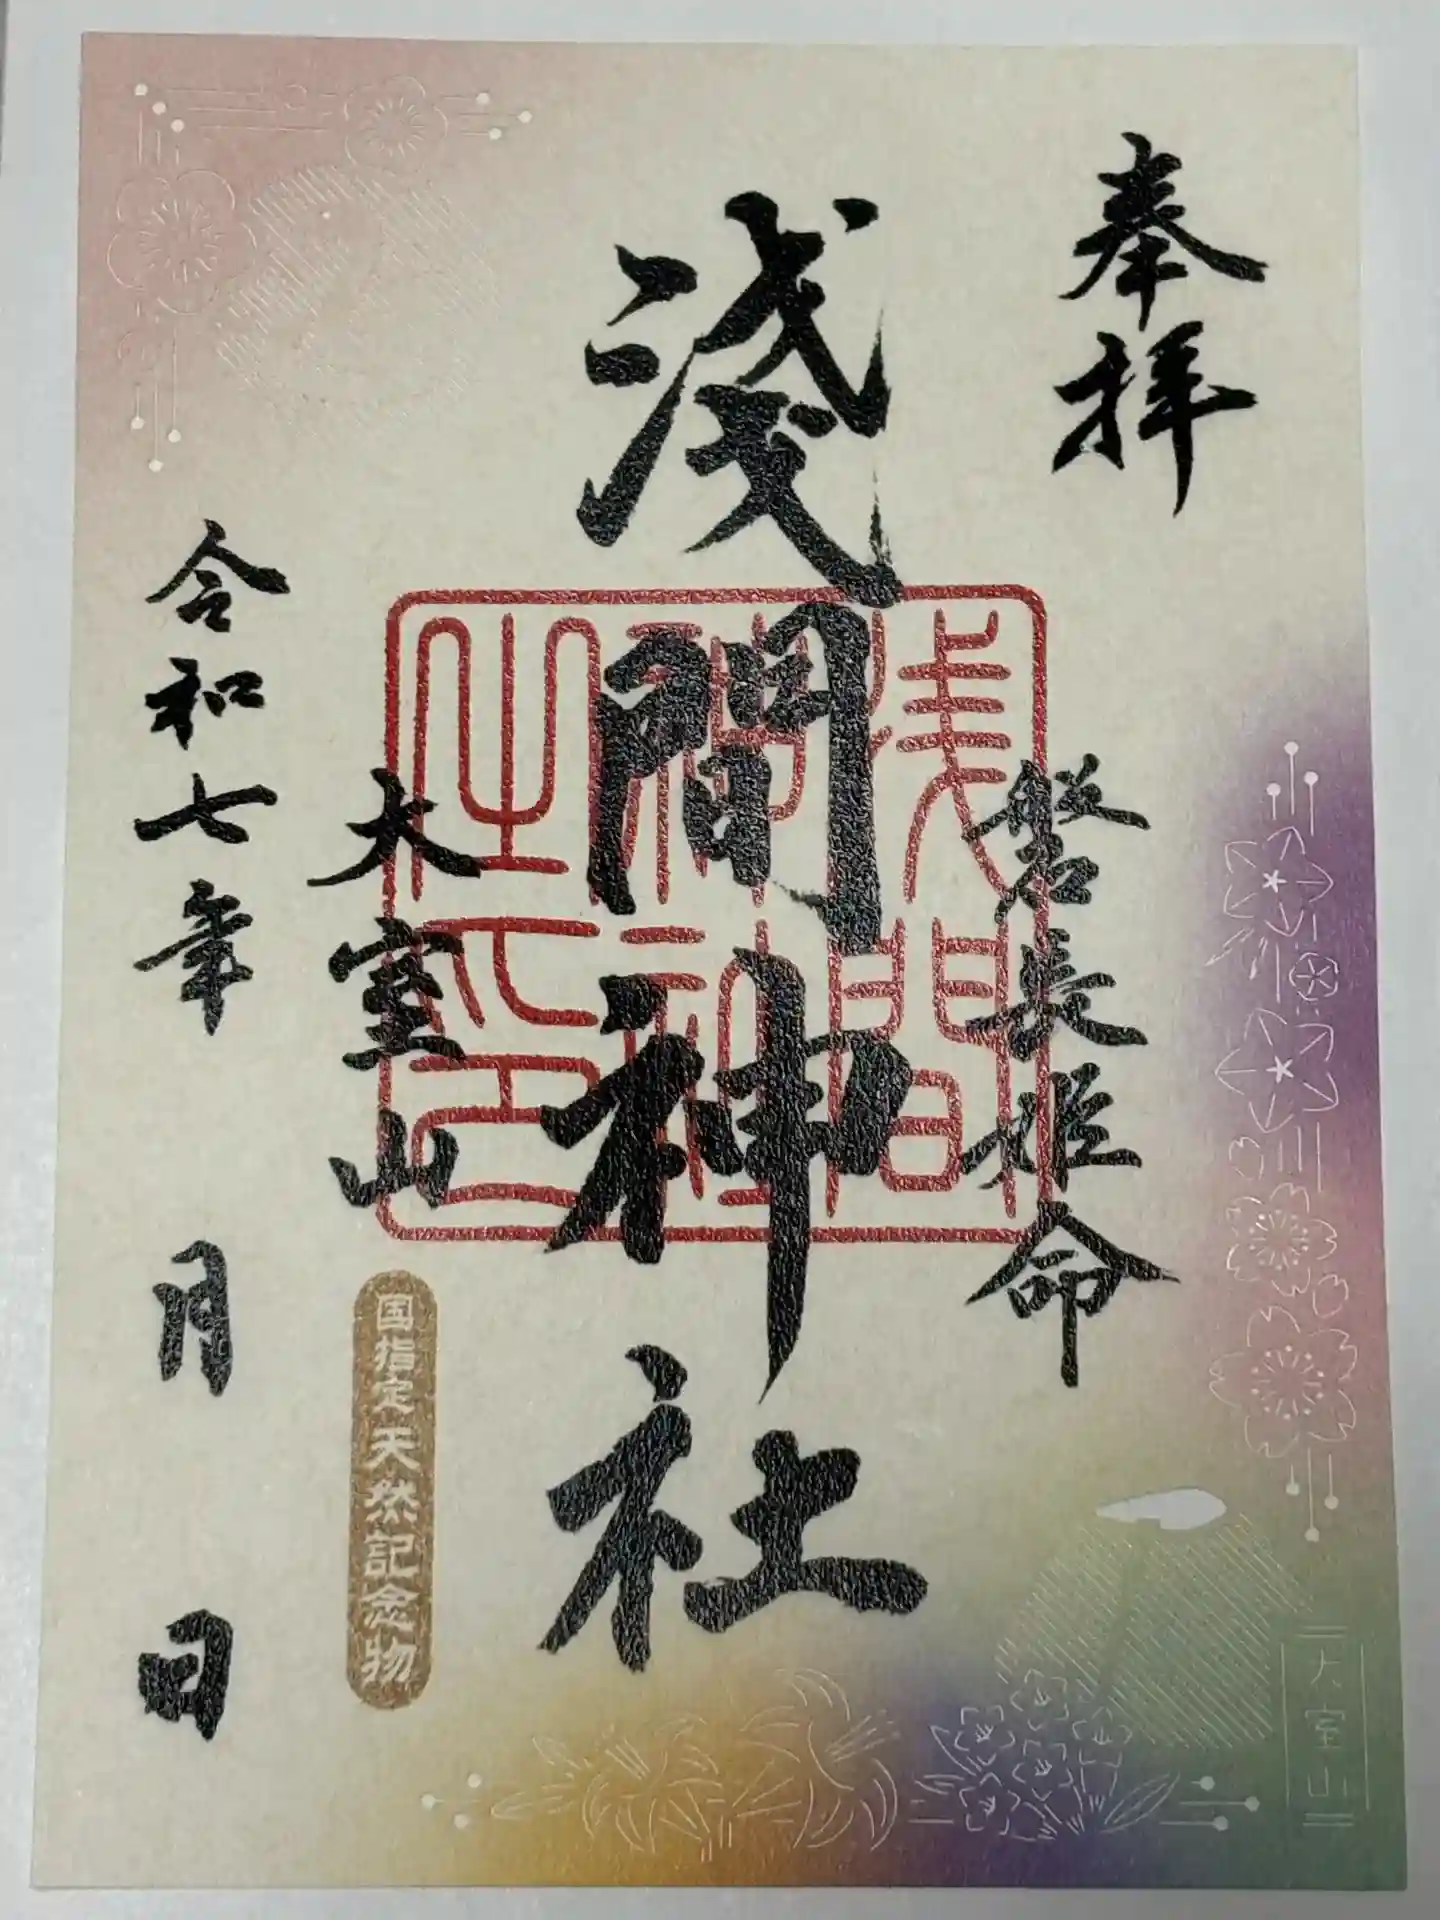 奉拝
磐長姫命
淺間神社
浅間
神社
之印
大室山
国指定天然記念物
令和七年 月 日
大室山